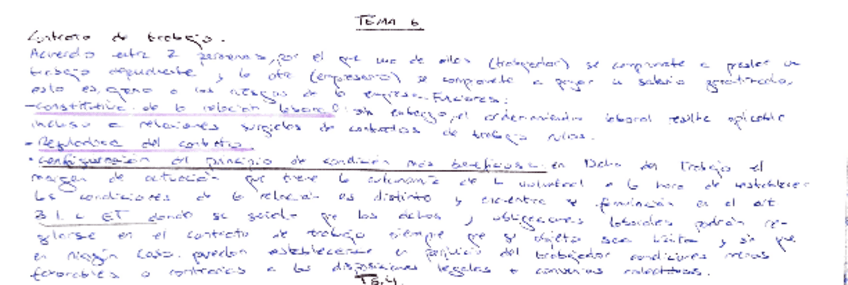 TEMA 6
Contrato de trabajo.
Acuerdo entre 2 personas, por el que una de ellas (trabajador) se compromete a prestar un
trabajo dependiente y la otra (empresario) se compromete a pagar un salario garantizado,
esto es, ajeno a los riesgos de la empresa. Funciones:
- Constitutiva de la relación laboral: sin embargo, el ordenamiento laboral resulta aplicable
incluso a relaciones surgidas de contratos de trabajo nulos.
- Reguladora del contrato
- Configuración del principio de condición más beneficiosa: en Dcho del Trabajo el
margen de actuación que tiene la autonomía de la voluntad a la hora de establecer
las condiciones de la relación es distinto y encuentra su en el art
3.1.c ET donde se que los dchos y obligaciones laborales podrán re-
gularse en el contrato de trabajo siempre que su objeto sea lícito y sin que
en ningún caso puedan establecerse en perjuicio del trabajador condiciones menos
favorables o contrarias a las disposiciones legales y convenios colectivos.